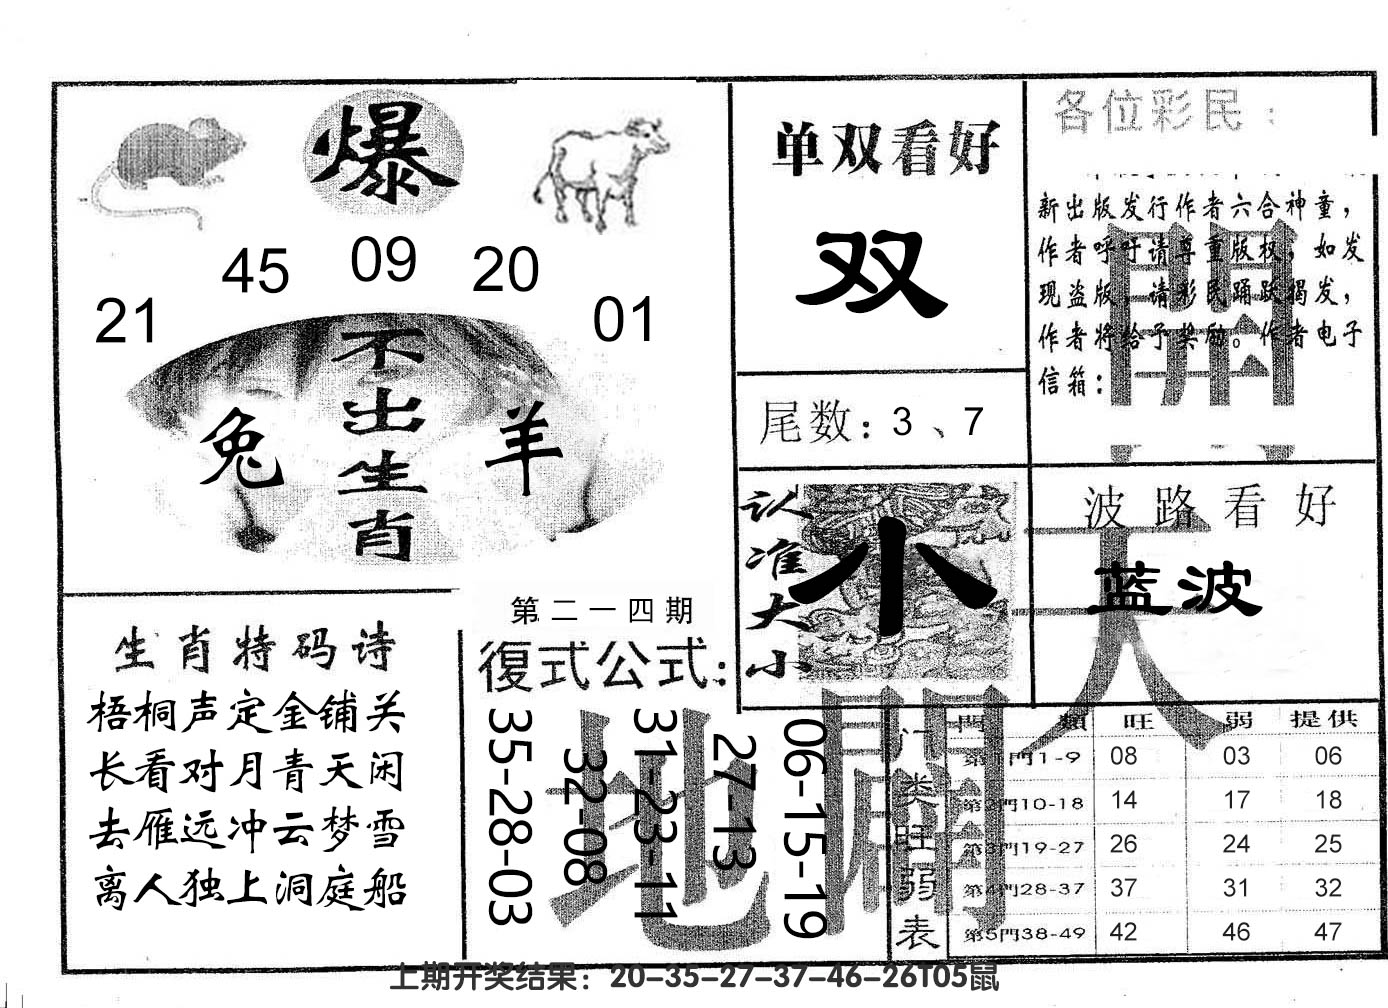 爆
45 09 20
21 01
不出生肖
兔 羊
单双看好
双
尾数：3、7
各位彩民：
新出版发行作者六合神童，
作者呼吁请尊重版权，如发
现盗版，请彩民踊跃揭发，
作者将给予奖励。作者电子
信箱：
認准大小
小
波路看好
蓝波
生肖特码诗
梧桐声定金铺关
长看对月青天闲
去雁远冲云梦雪
离人独上洞庭船
第二一四期
復式公式：
35-28-03
32-08
31-23-11
27-13
06-15-19
天
地
門类旺弱表
門類 旺 弱 提供
第1門1-9 08 03 06
第2門10-18 14 17 18
第3門19-27 26 24 25
第4門28-37 37 31 32
第5門38-49 42 46 47
上期开奖结果：20-35-27-37-46-26T05鼠